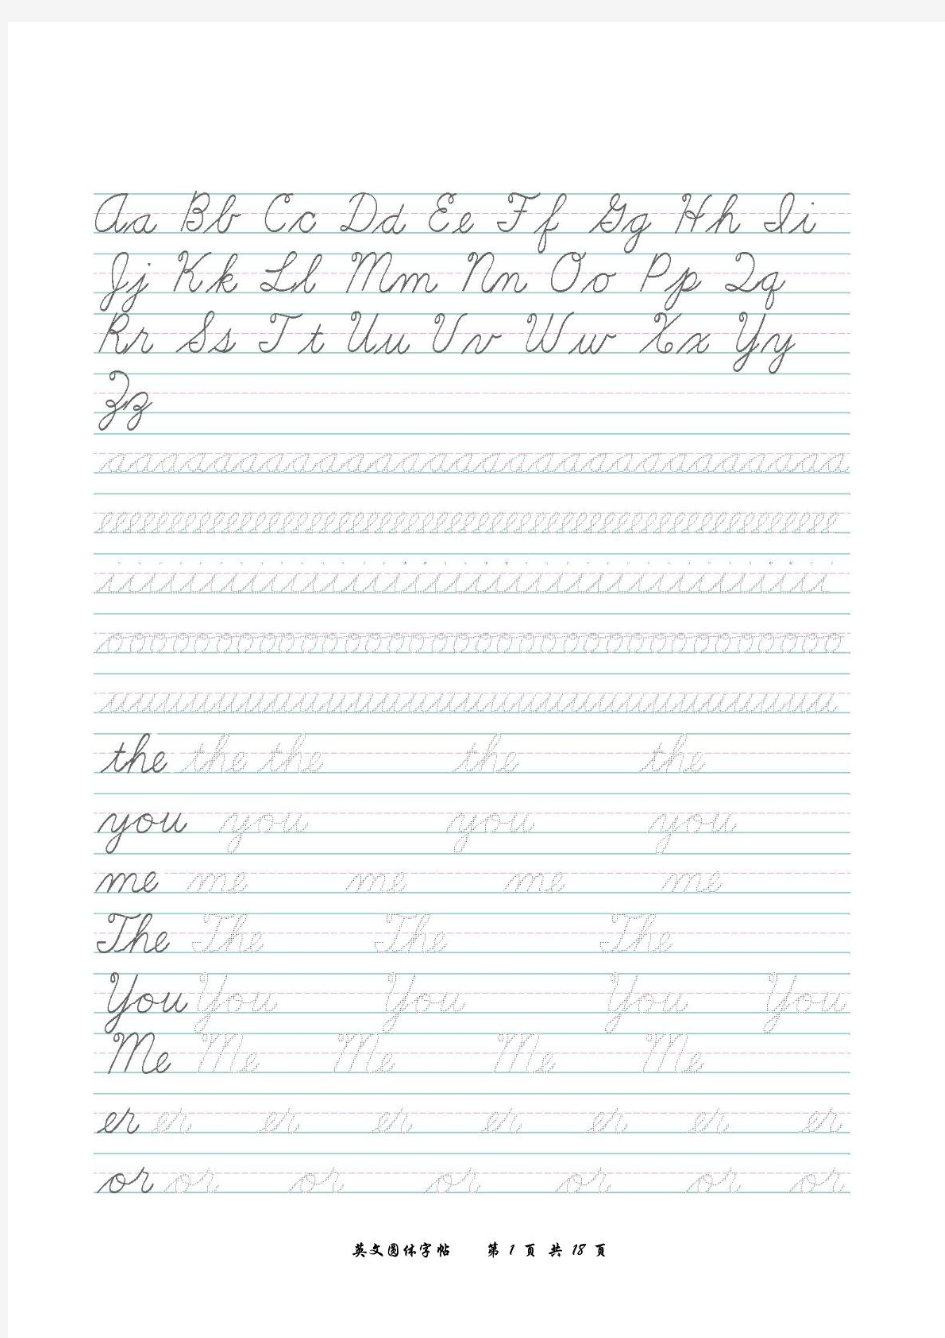 Aa Bb Cc Dd Ee Ff Gg Hh Ii
Jj Kk Ll Mm Nn Oo Pp Qq
Rr Ss Tt Uu Vv Ww Xx Yy
Zz
aaaaaaaaaaaaaaaaaaaaaaaaaaaa
eeeeeeeeeeeeeeeeeeeeeeeeeeeeeeeeeeeeeeeeeeeee
iiiiiiiiiiiiiiiiiiiiiiiiiiiiiiiiiiii
oooooooooooooooooooooooooooooooooooo
uuuuuuuuuuuuuuuuuuuuuuuuuuu
the the the the the
you you you you
me me me me me
The The The The
You You You You You
Me Me Me Me Me
er er er er er er er
or or or or or or or
英文圆体字帖 第 1 页 共 18 页